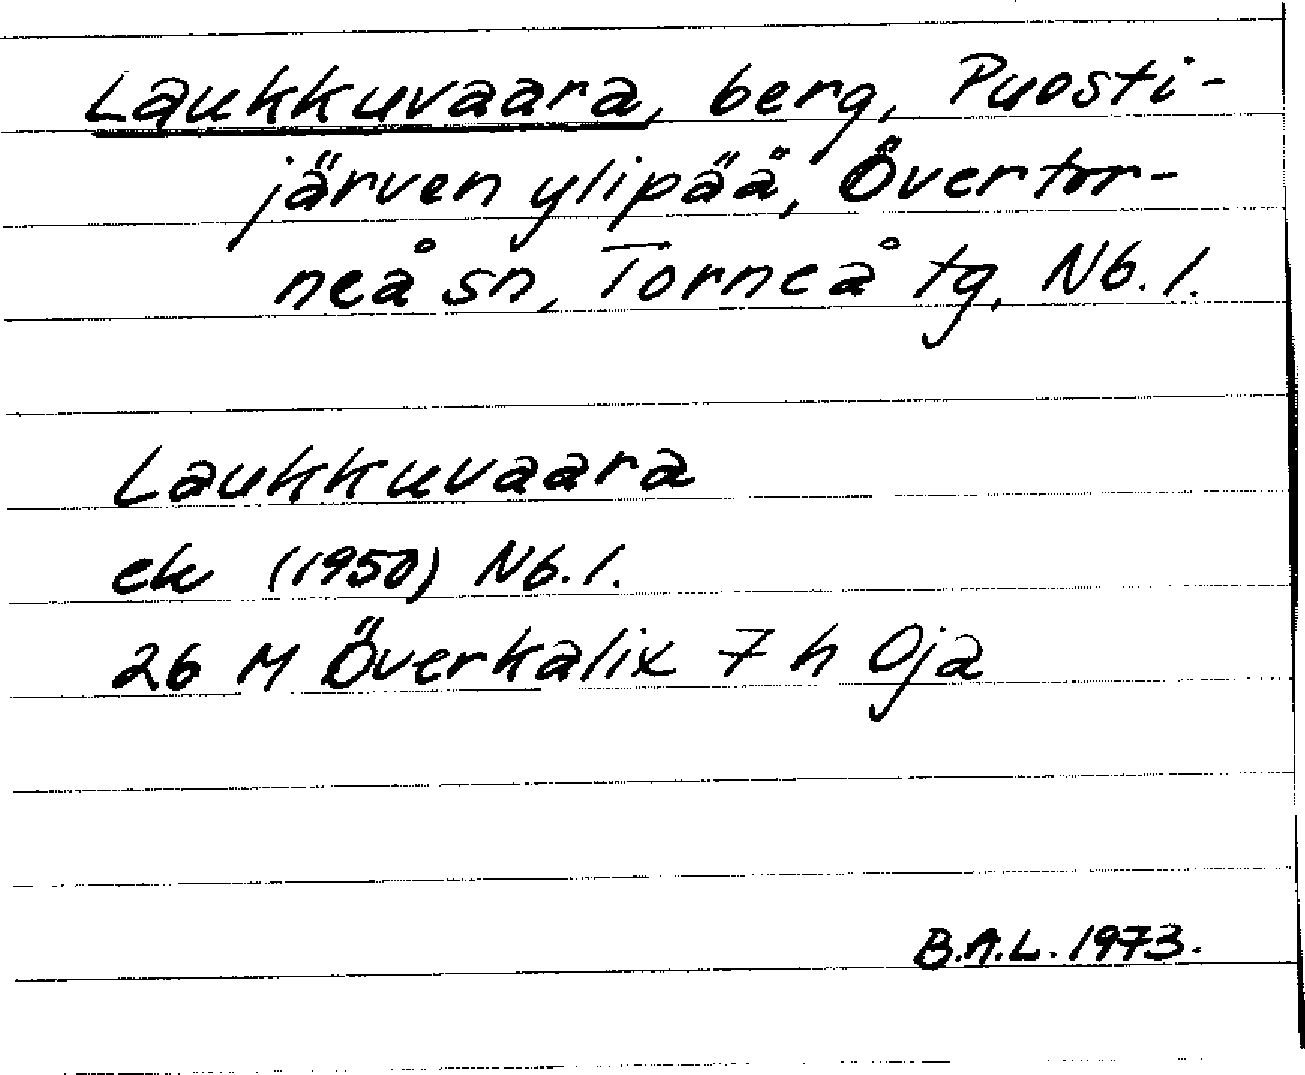 Laukkuvaara, berg, Puosti-
järven ylipää, Övertor-
neå sn, Torneå tg, Nb. l.
Laukkuvaara
ek (1950) Nb. l.
26 M Överkalix 7 h Oja
B.A.L. 1973.